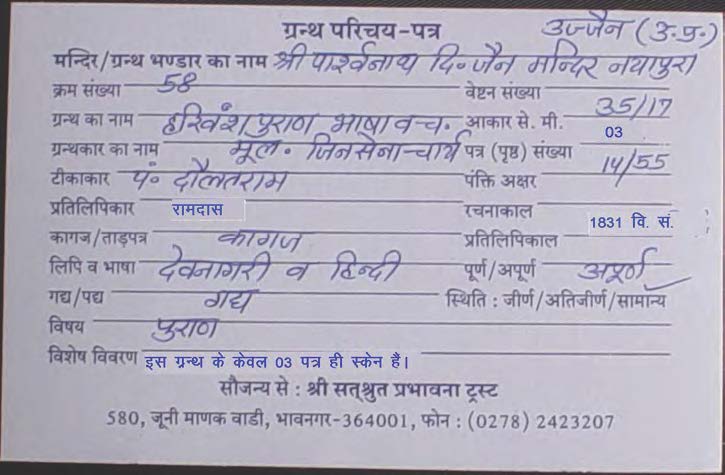 ग्रन्थ परिचय-पत्र उज्जैन (उ.प्र.)
मन्दिर/ग्रन्थ भण्डार का नाम श्री पार्श्वनाथ दि॰ जैन मन्दिर नयापुरा
क्रम संख्या 58 वेष्टन संख्या
ग्रन्थ का नाम हरिवंशपुराण भाषा वच. आकार से. मी. 35/17
ग्रन्थकार का नाम मूल. जिनसेनाचार्य पत्र (पृष्ठ) संख्या 03
टीकाकार पं. दौलतराम पंक्ति अक्षर 14/55
प्रतिलिपिकार रामदास रचनाकाल
कागज/ताड़पत्र कागज प्रतिलिपिकाल 1831 वि. सं.
लिपि व भाषा देवनागरी व हिन्दी पूर्ण/अपूर्ण अपूर्ण
गद्य/पद्य गद्य स्थिति : जीर्ण/अतिजीर्ण/सामान्य
विषय पुराण
विशेष विवरण इस ग्रन्थ के केवल 03 पत्र ही स्केन है।
सौजन्य से : श्री सत्श्रुत प्रभावना ट्रस्ट
580, जूनी माणक वाडी, भावनगर-364001, फोन : (0278) 2423207